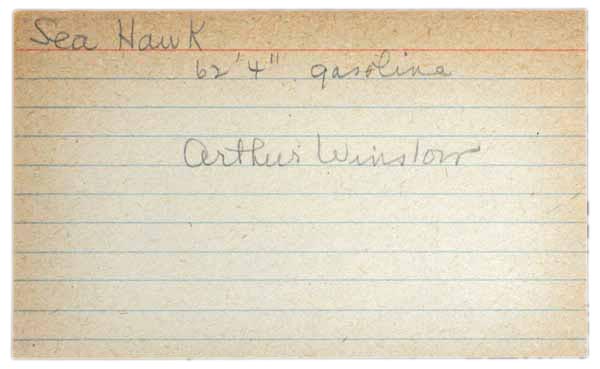 Sea Hawk
62'4" gasoline
Arthur Winslow